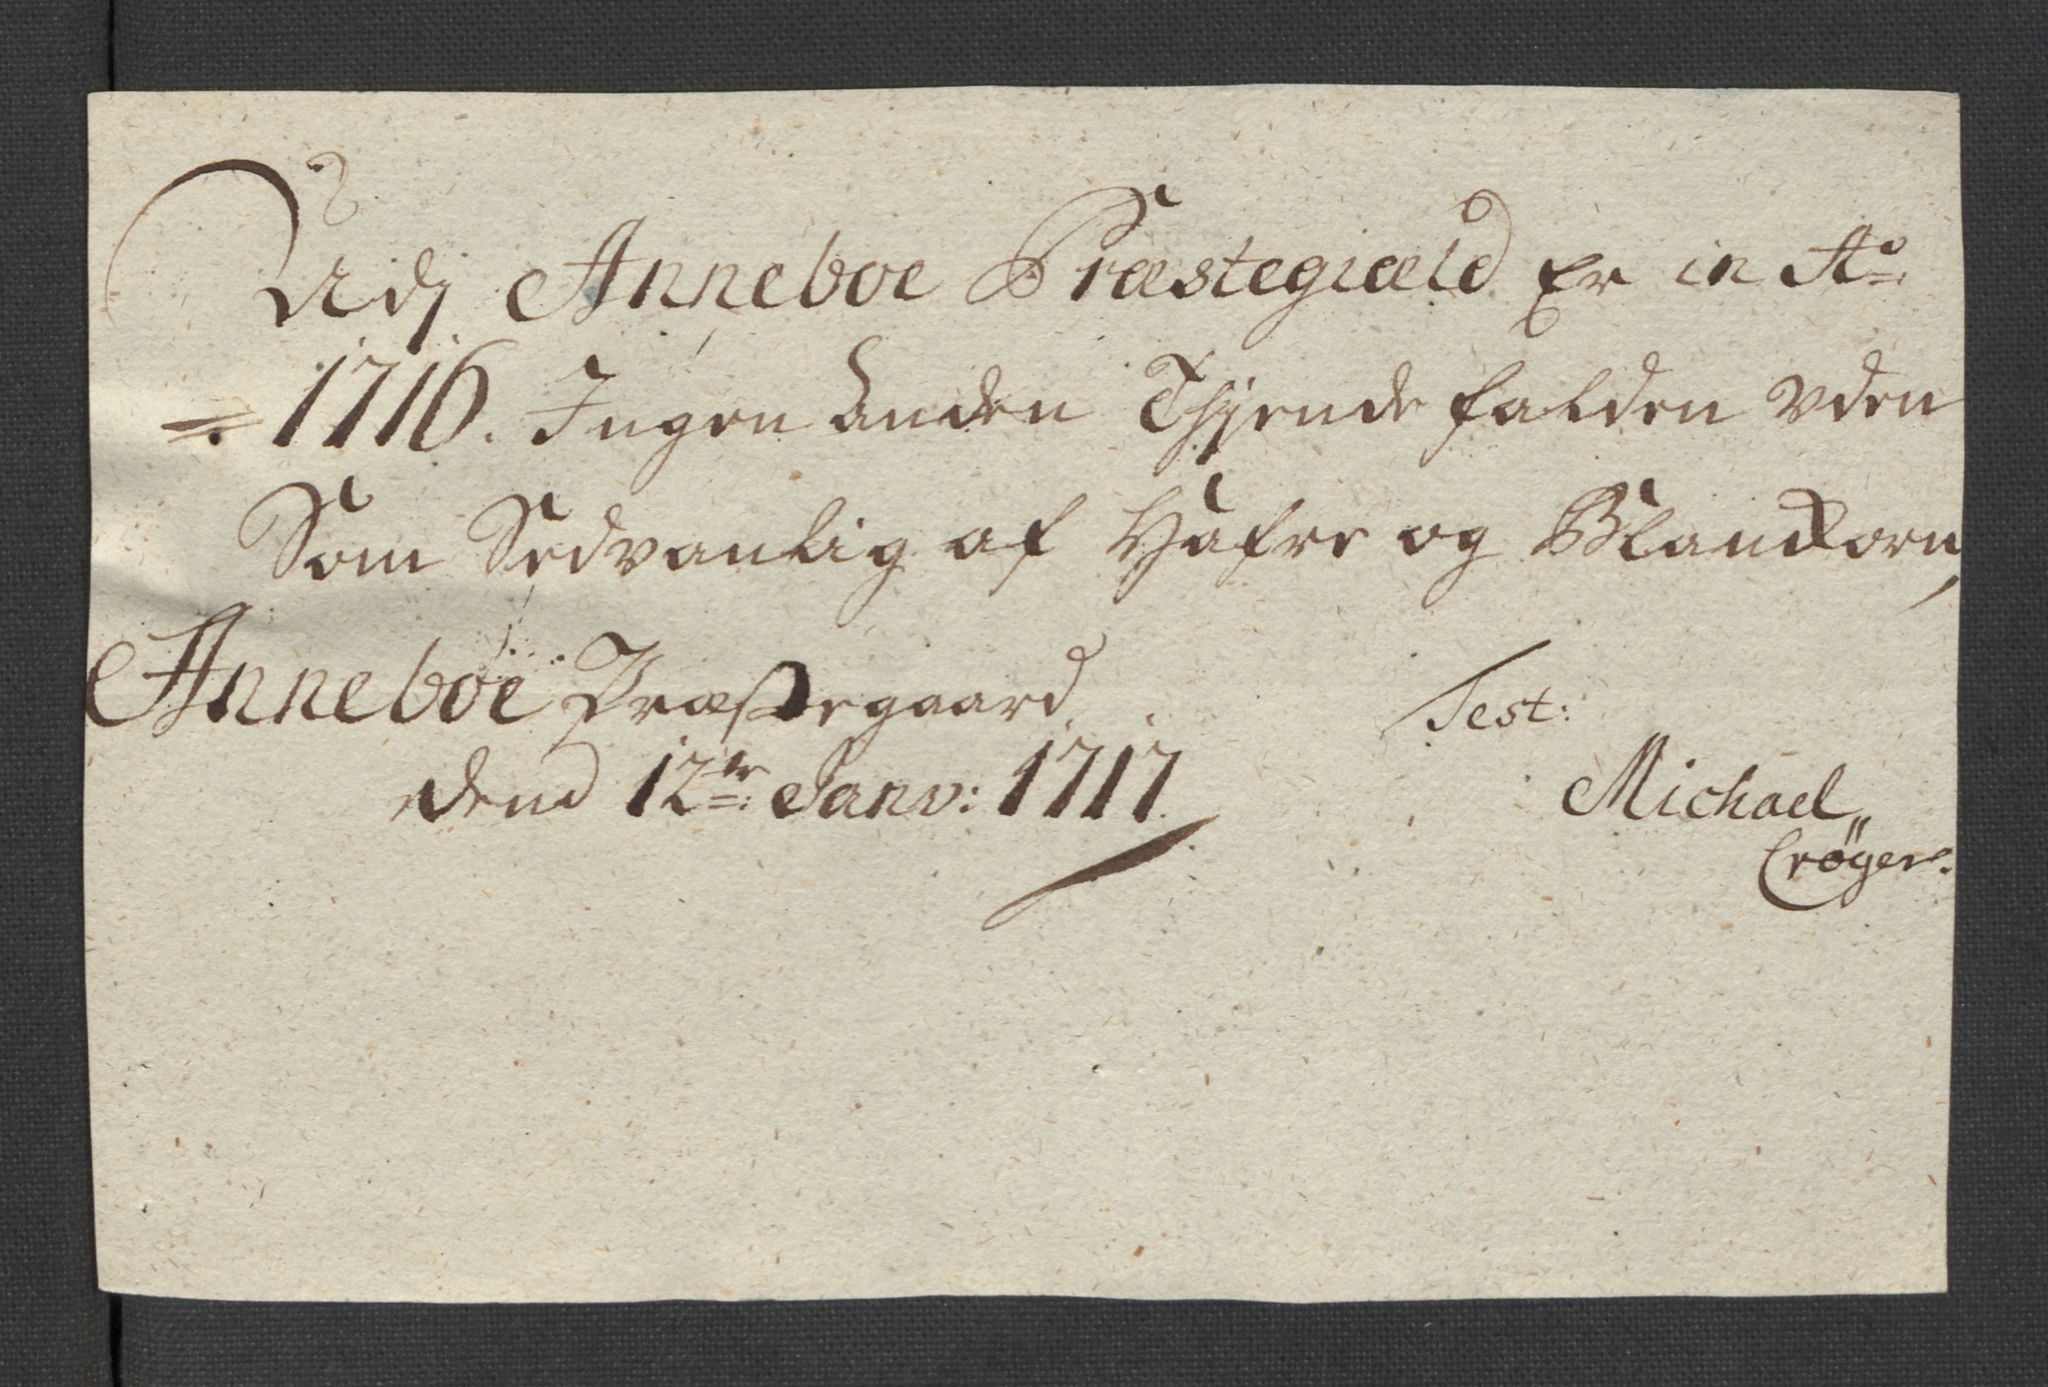 Udj Anneboe Præstegiæld Er in Ao:
1716. Ingen Anden Thjende falden Vden
Som Sedvanlig af Hafre og Blandkorn,
Anneboe Præstegaard Test:
dend 12te: Janv: 1717. Michael
Crøger.